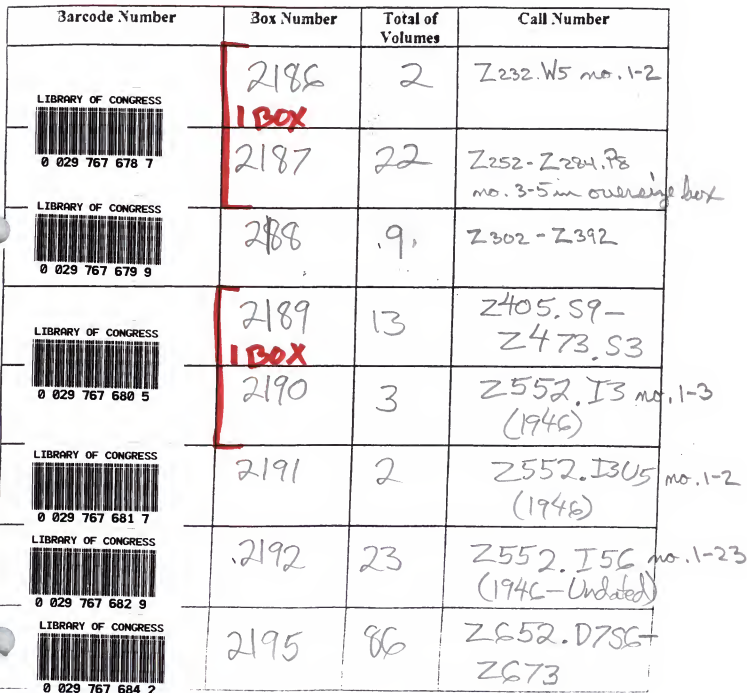 Barcode Number Box Number Total of Volumes Call Number
LIBRARY OF CONGRESS
0 029 767 678 7
2186 2 Z232.W5 no.1-2
1 BOX
2187 22 Z252-Z284.P8
no. 3-5 in oversize box
LIBRARY OF CONGRESS
0 029 767 679 9
2188 9 Z302-Z392
LIBRARY OF CONGRESS
0 029 767 680 5
2189 13 Z405.S9-
Z473.S3
1 BOX
2190 3 Z552.I3 no.1-3
(1946)
LIBRARY OF CONGRESS
0 029 767 681 7
2191 2 Z552.I3U5 no.1-2
(1946)
LIBRARY OF CONGRESS
0 029 767 682 9
2192 23 Z552.I56 no.1-23
(1946-Undated)
LIBRARY OF CONGRESS
0 029 767 684 2
2195 86 Z652.D7S6-
Z673